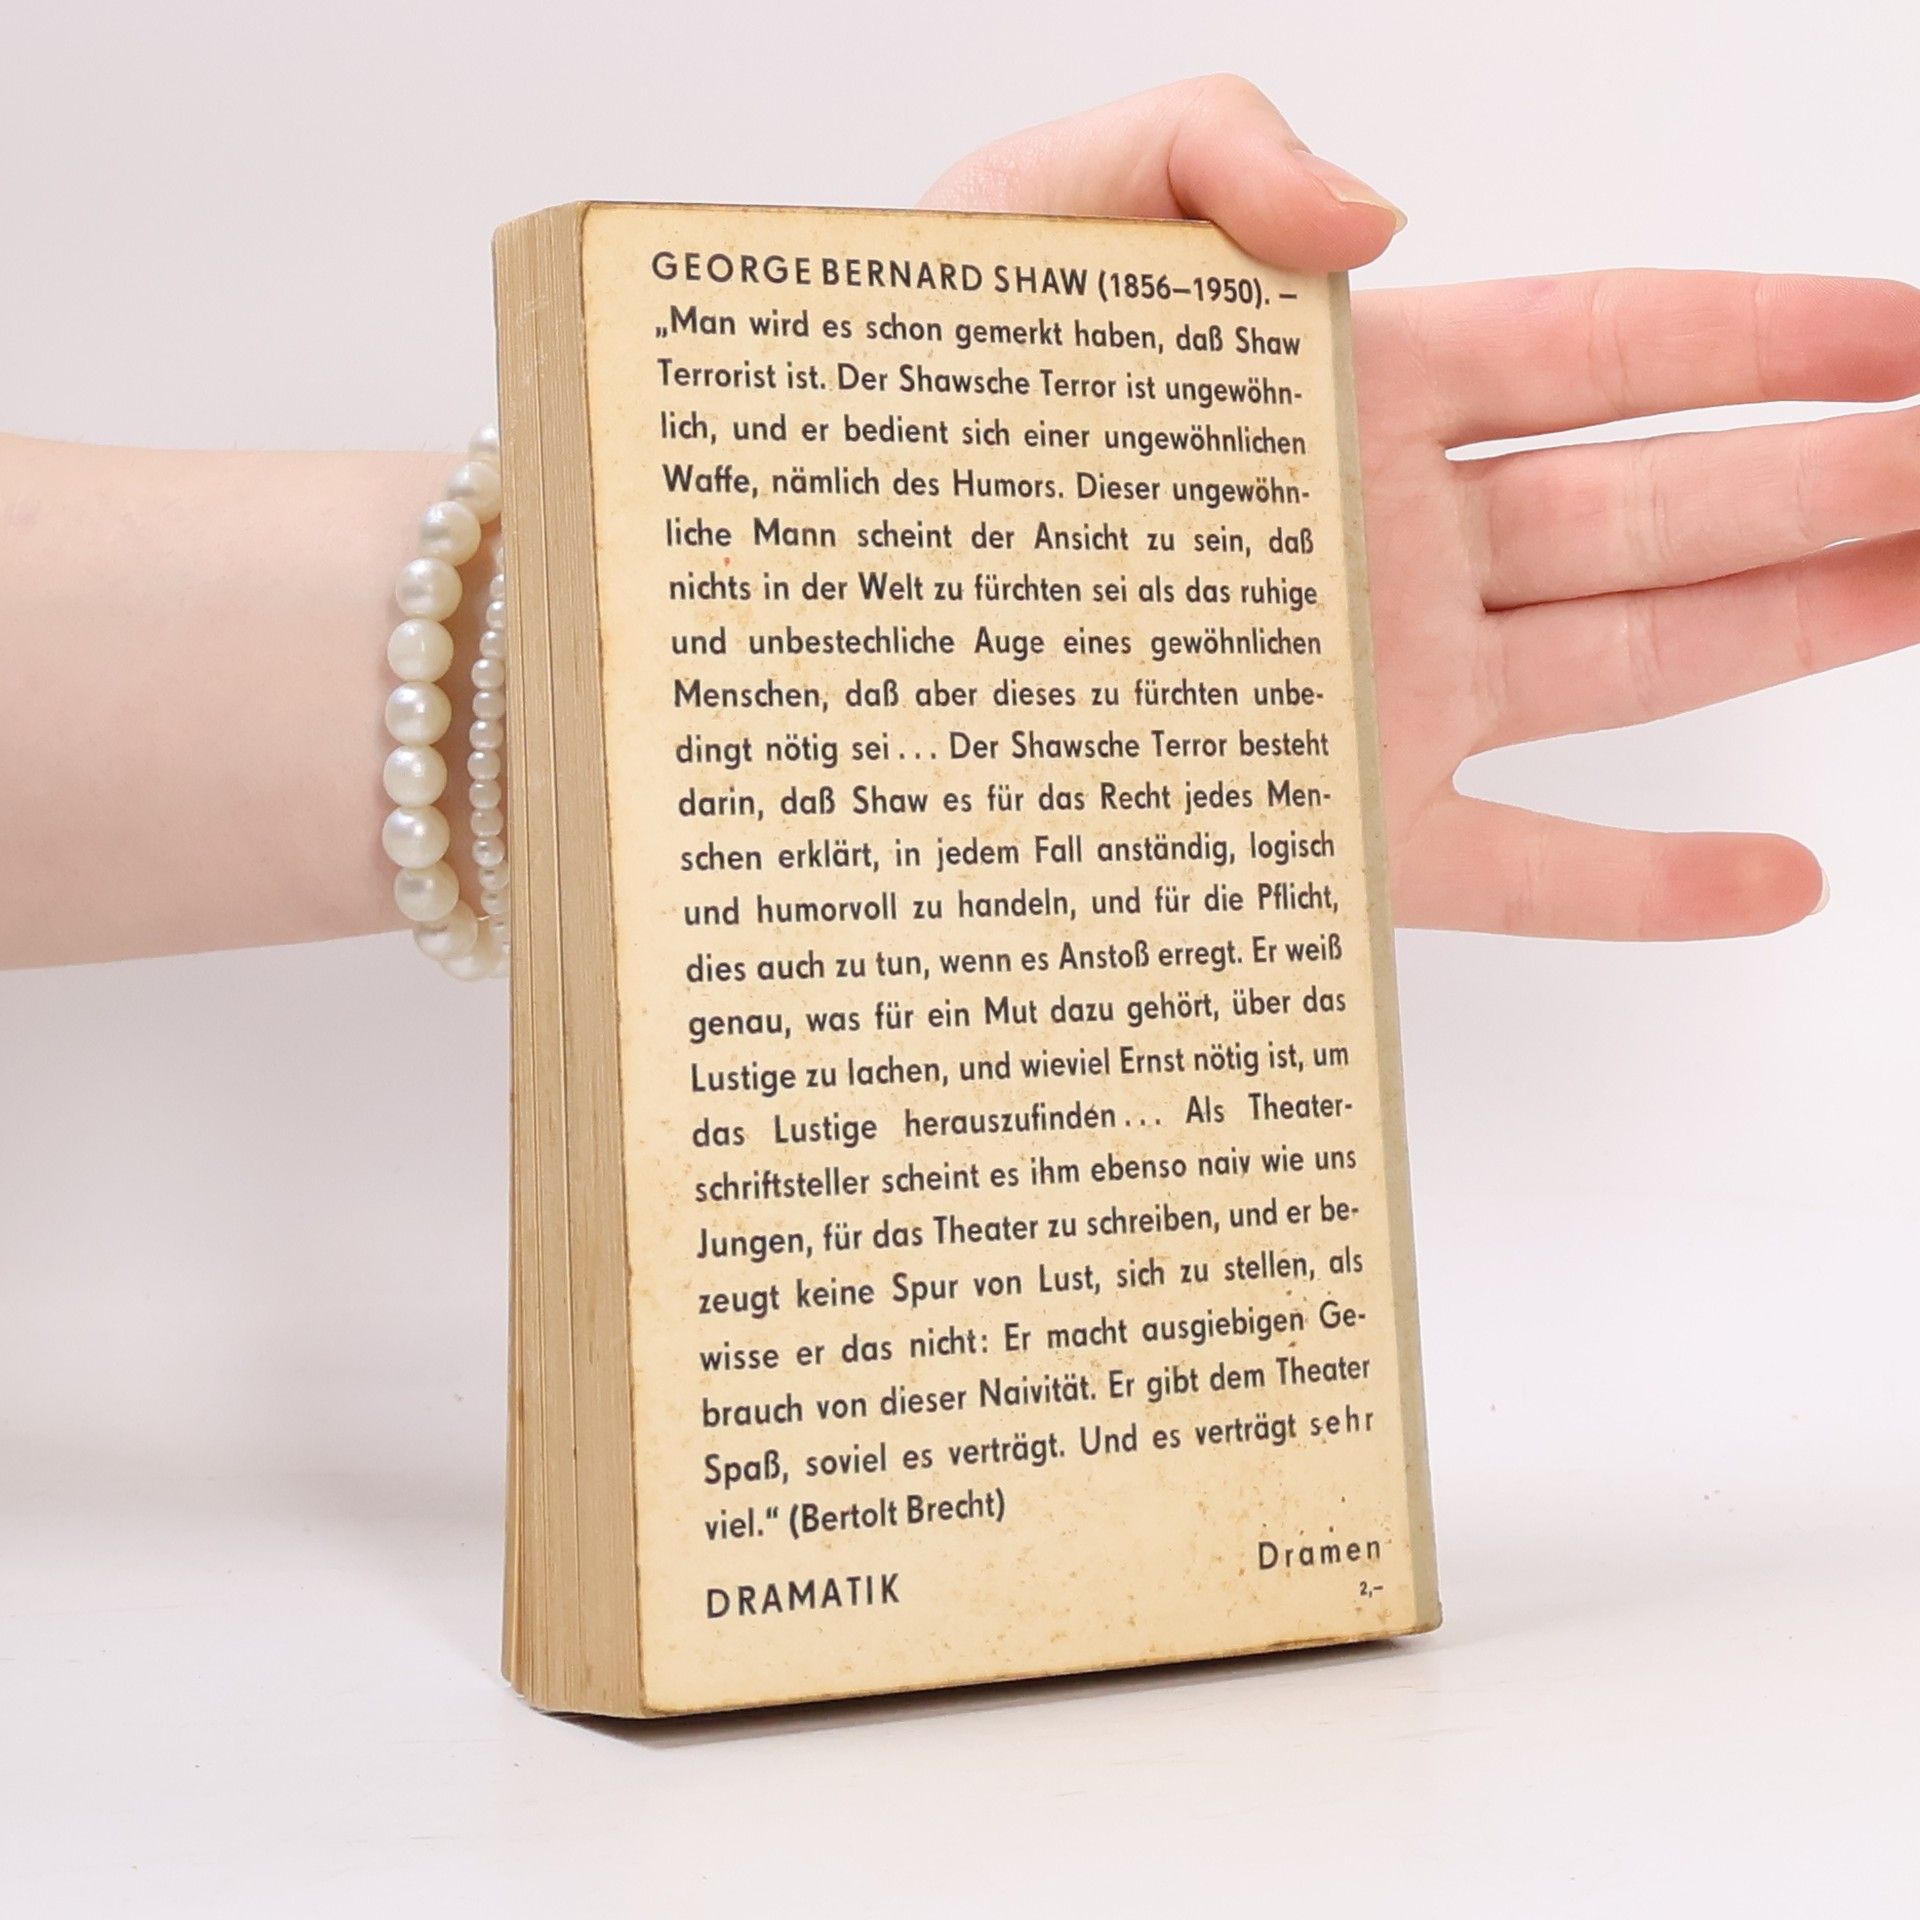 GEORGE BERNARD SHAW (1856–1950). –
„Man wird es schon gemerkt haben, daß Shaw
Terrorist ist. Der Shawsche Terror ist ungewöhn-
lich, und er bedient sich einer ungewöhnlichen
Waffe, nämlich des Humors. Dieser ungewöhn-
liche Mann scheint der Ansicht zu sein, daß
nichts in der Welt zu fürchten sei als das ruhige
und unbestechliche Auge eines gewöhnlichen
Menschen, daß aber dieses zu fürchten unbe-
dingt nötig sei... Der Shawsche Terror besteht
darin, daß Shaw es für das Recht jedes Men-
schen erklärt, in jedem Fall anständig, logisch
und humorvoll zu handeln, und für die Pflicht,
dies auch zu tun, wenn es Anstoß erregt. Er weiß
genau, was für ein Mut dazu gehört, über das
Lustige zu lachen, und wieviel Ernst nötig ist, um
das Lustige herauszufinden... Als Theater-
schriftsteller scheint es ihm ebenso naiv wie uns
Jungen, für das Theater zu schreiben, und er be-
zeugt keine Spur von Lust, sich zu stellen, als
wisse er das nicht: Er macht ausgiebigen Ge-
brauch von dieser Naivität. Er gibt dem Theater
Spaß, soviel es verträgt. Und es verträgt sehr
viel.“ (Bertolt Brecht)
Dramen
2,–
DRAMATIK